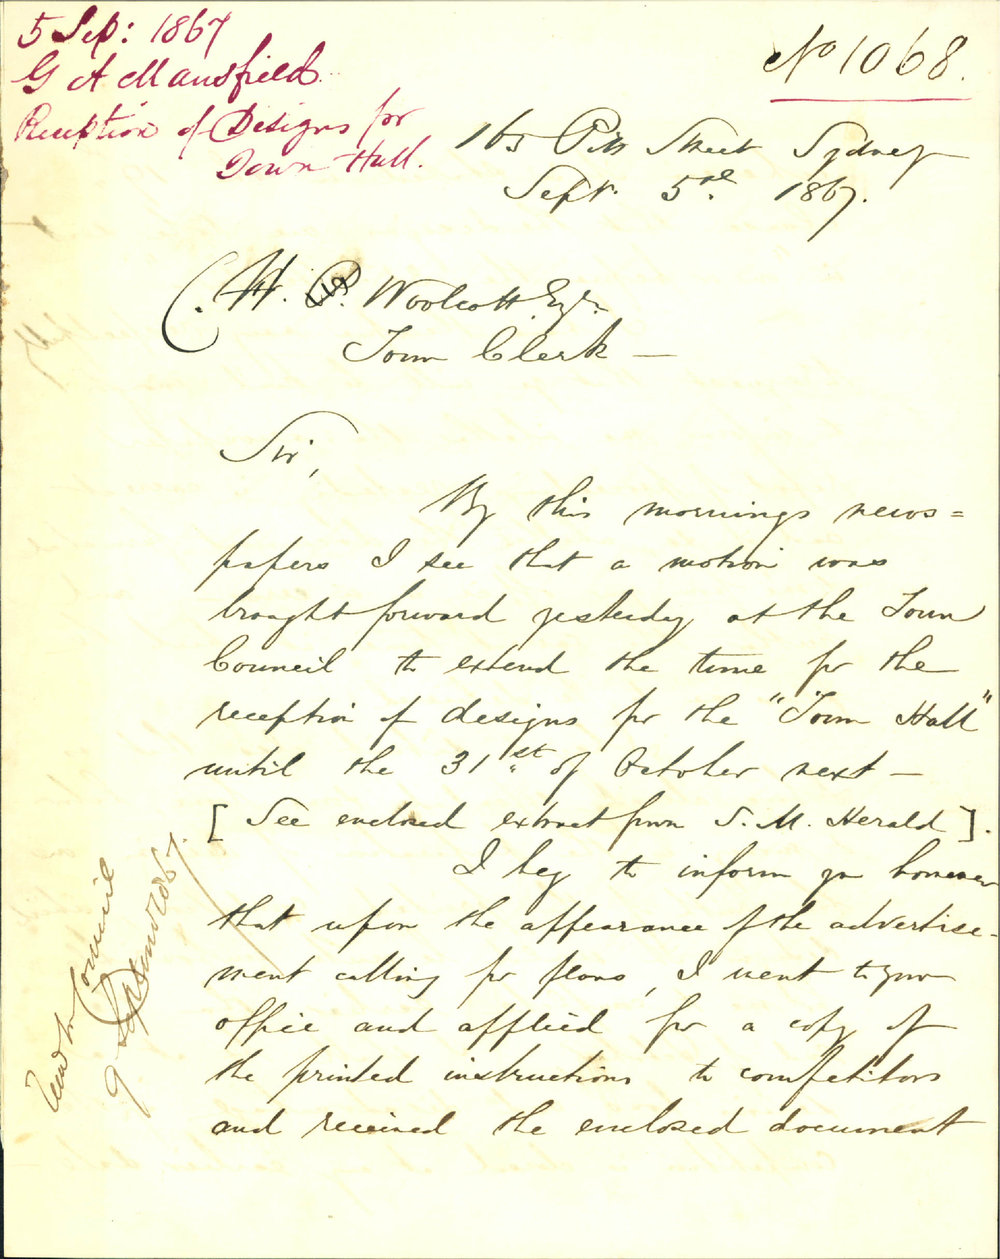 5 Sep: 1867
G A Mansfield
Reception of Designs for
Town Hall.
No 1068.
165 Pitt Street Sydney
Sept. 5th 1867.
C. H. Woolcott Esqr.
Town Clerk —
Sir,
By this mornings news=
papers I see that a motion was
brought forward yesterday at the Town
Council to extend the time for the
reception of designs for the "Town Hall"
until the 31st of October next —
[ See enclosed extract from S. M. Herald ].
I beg to inform you however
that upon the appearance of the advertise-
ment calling for plans, I went to your
office and applied for a copy of
the printed instructions to competitors
and received the enclosed document
Read in Council
9 Septemb 1867.